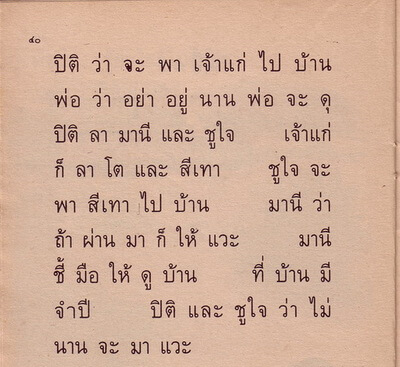 ๔๐
ปิติ ว่า จะ พา เจ้าแก่ ไป บ้าน
พ่อ ว่า อย่า อยู่ นาน พ่อ จะ ดุ
ปิติ ลา มานี และ ชูใจ เจ้าแก่
ก็ ลา โต และ สีเทา ชูใจ จะ
พา สีเทา ไป บ้าน มานี ว่า
ถ้า ผ่าน มา ก็ ให้ แวะ มานี
ชี้ มือ ให้ ดู บ้าน ที่ บ้าน มี
จำปี ปิติ และ ชูใจ ว่า ไม่
นาน จะ มา แวะ